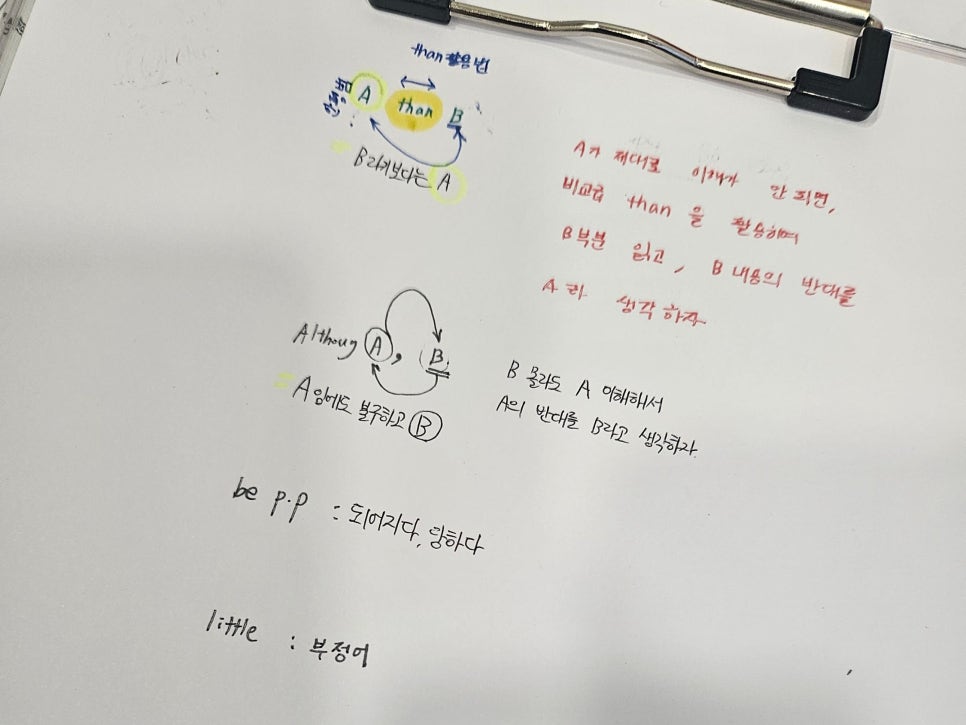 than 활용법
A than B
B라기보다는 A
A가 제대로 이해가 안 되면,
비교급 than 을 활용하여
B부분 읽고, B 내용의 반대를
A 라 생각하자
Althoug A, B.
A임에도 불구하고 B
B 몰라도 A 이해해서
A의 반대를 B라고 생각하자.
be p.p : 되어지다, 당하다
little : 부정어